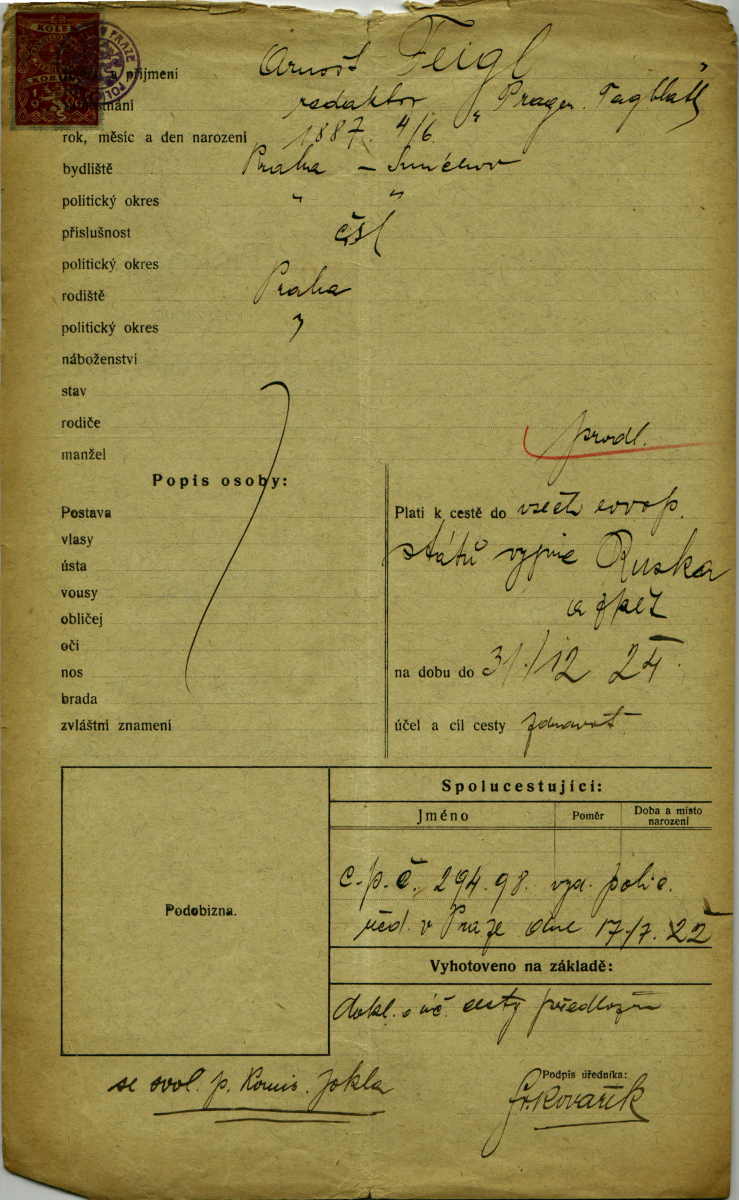 KOLEK
jméno a příjmení Arnošt Feigl
zaměstnání redaktor „Prager Tagblatt"
rok, měsíc a den narození 1887. 4/6.
bydliště Praha – Smíchov
politický okres " "
příslušnost čsl
politický okres
rodiště Praha
politický okres "
náboženství
stav
rodiče
manžel
prodl.
Popis osoby:
Postava
vlasy
ústa
vousy
obličej
oči
nos
brada
zvláštní znamení
Platí k cestě do všech evrop.
států vyjme Ruska
a zpět
na dobu do 31./12 24.
účel a cíl cesty zdravot.
Podobizna.
Spolucestující:
Jméno Poměr Doba a místo narození
c.p.č. 294.98. vyd. polic.
řed. v Praze dne 17./7. 22
Vyhotoveno na základě:
dokl. o úč. cesty předlož.
se svol. p. Komis. Jokla
Podpis úředníka:
Fr. Kovařík